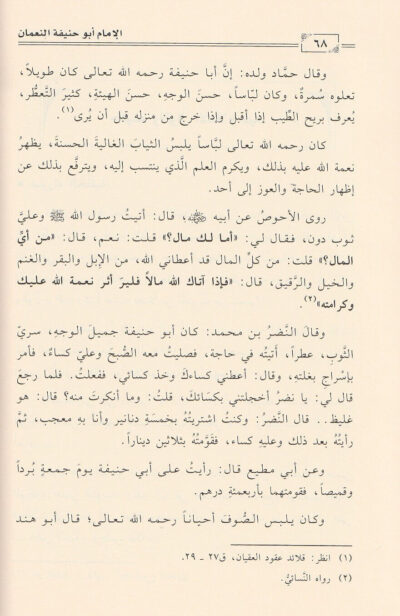 ٦٨
الإمام أبو حنيفة النعمان
وقال حمَّاد ولده: إنَّ أبا حنيفة رحمه الله تعالى كان طويلاً،
تعلوه سُمرةٌ، وكان لبّاساً، حسنَ الوجهِ، حسنَ الهيئةِ، كثيرَ التَّعطُّر،
يُعرف بريح الطِّيب إذا أقبل وإذا خرج من منزله قبل أن يُرى(١).
كان رحمه الله تعالى لبَّاساً يلبسُ الثيابَ الغاليةَ الحسنةَ، يظهرُ
نعمة الله عليه بذلك، ويكرم العلم الَّذي ينتسب إليه، ويترفَّع بذلك عن
إظهار الحاجة والعوز إلى أحد.
روى الأحوصُ عن أبيه رضي الله عنه، قال: أتيتُ رسول الله ﷺ وعليَّ
ثوب دون، فقال لي: «أما لك مال؟» قلت: نعم، قال: «من أيِّ
المال؟» قلت: من كلِّ المال قد أعطاني الله، من الإبل والبقر والغنم
والخيل والرَّقيق، قال: «فإذا آتاك الله مالاً فليرَ أثر نعمة الله عليك
وكرامته»(٢).
وقالَ النَّضرُ بن محمد: كان أبو حنيفة جميلَ الوجهِ، سريّ
الثَّوبِ، عطراً، أتيتُه في حاجة، فصليتُ معه الصُّبحَ وعليّ كساءٌ، فأمر
بإسْراجِ بغلتهِ، وقال: أعطني كساءكَ وخذ كسائي، ففعلتُ. فلما رجعَ
قال لي: يا نضرُ أخجلتني بكسَائكَ، قلتُ: وما أنكرتَ منه؟ قال: هو
غليظ.. قال النَّضرُ: وكنتُ اشتريتُهُ بخمسةِ دنانير وأنا به معجب، ثمَّ
رأيتُهُ بعد ذلك وعليهِ كساء، فقَوَّمتُهُ بثلاثين ديناراً.
وعن أبي مطيع قال: رأيتُ على أبي حنيفة يومَ جمعةٍ بُرداً
وقميصاً، فقومتهما بأربعمئةِ درهم.
وكان يلبس الصُّوفَ أحياناً رحمه الله تعالى؛ قال أبو هند
(١) انظر: قلائد عقود العقيان، ق٢٧ ـ ٢٩.
(٢) رواه النَّسائيُّ.